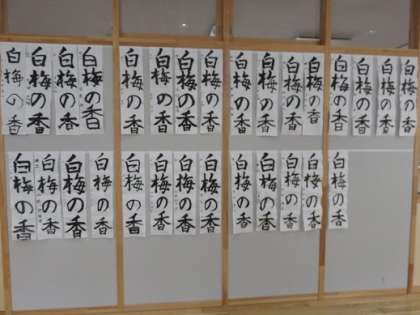 白梅の香
白梅の香
白梅の香
白梅の香
白梅の香
白梅の香
白梅の香
白梅の香
白梅の香
白梅の香
白梅の香
白梅の香
白梅の香
白梅の香
白梅の香
白梅の香
白梅の香
白梅の香
白梅の香
白梅の香
白梅の香
白梅の香
白梅の香
白梅の香
白梅の香
白梅の香
白梅の香
白梅の香
白梅の香